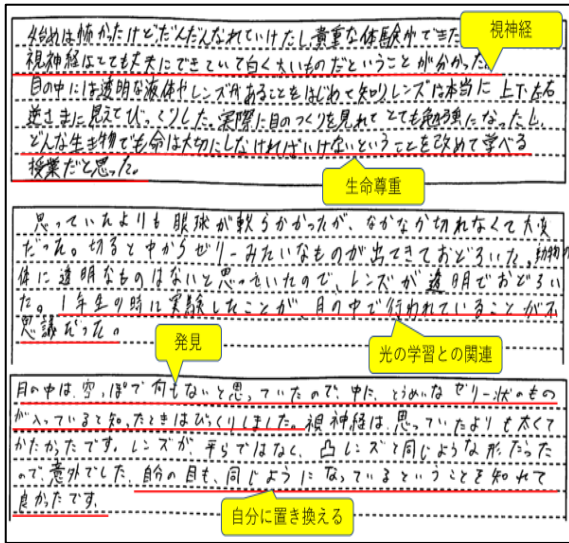 始めは怖かったけどだんだんなれていけたし、貴重な体験ができた
視神経
視神経はとても丈夫にできていて白く太いものだということが分かった。
目の中には透明な液体やレンズがあることをはじめて知り、レンズは本当に上下左右
逆さまに見えてびっくりした。実際に目のつくりを見れてとても勉強になったし、
どんな生き物でも命は大切にしなければいけないということを改めて学べる
授業だと思った。
生命尊重
思っていたよりも眼球が軟らかかったが、なかなか切れなくて大変
だった。切ると中からゼリーみたいなものが出てきておどろいた。動物の
体に透明なものはないと思っていたので、レンズが透明でおどろい
た。1年生の時に実験したことが、目の中で行われていることが不
思議だった。
発見
光の学習との関連
目の中は、空っぽで何もないと思っていたので、中に、とうめいなゼリー状のもの
が入っていると知ったときはびっくりしました。視神経は、思っていたよりも太くて
かたかったです。レンズが、平らではなく、凸レンズと同じような形だった
ので、意外でした。自分の目も、同じようになっているということを知れて
良かったです。
自分に置き換える